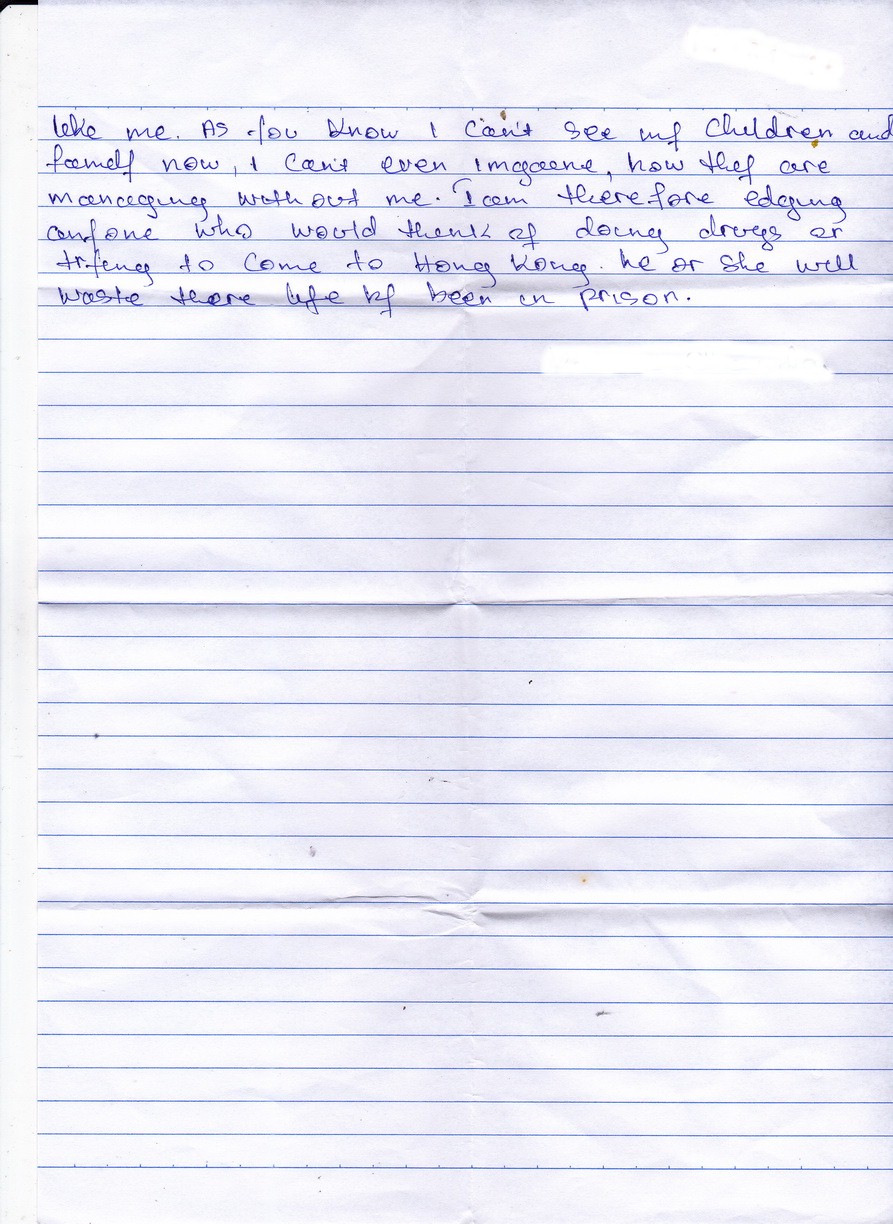 like me. As you know I can't see my children and
family now, I can't even imgaene, how they are
manceging without me. I am therefore edging
anyone who would think of doing drugs or
trying to come to Hong Kong. he or she will
waste there life by been in prison.